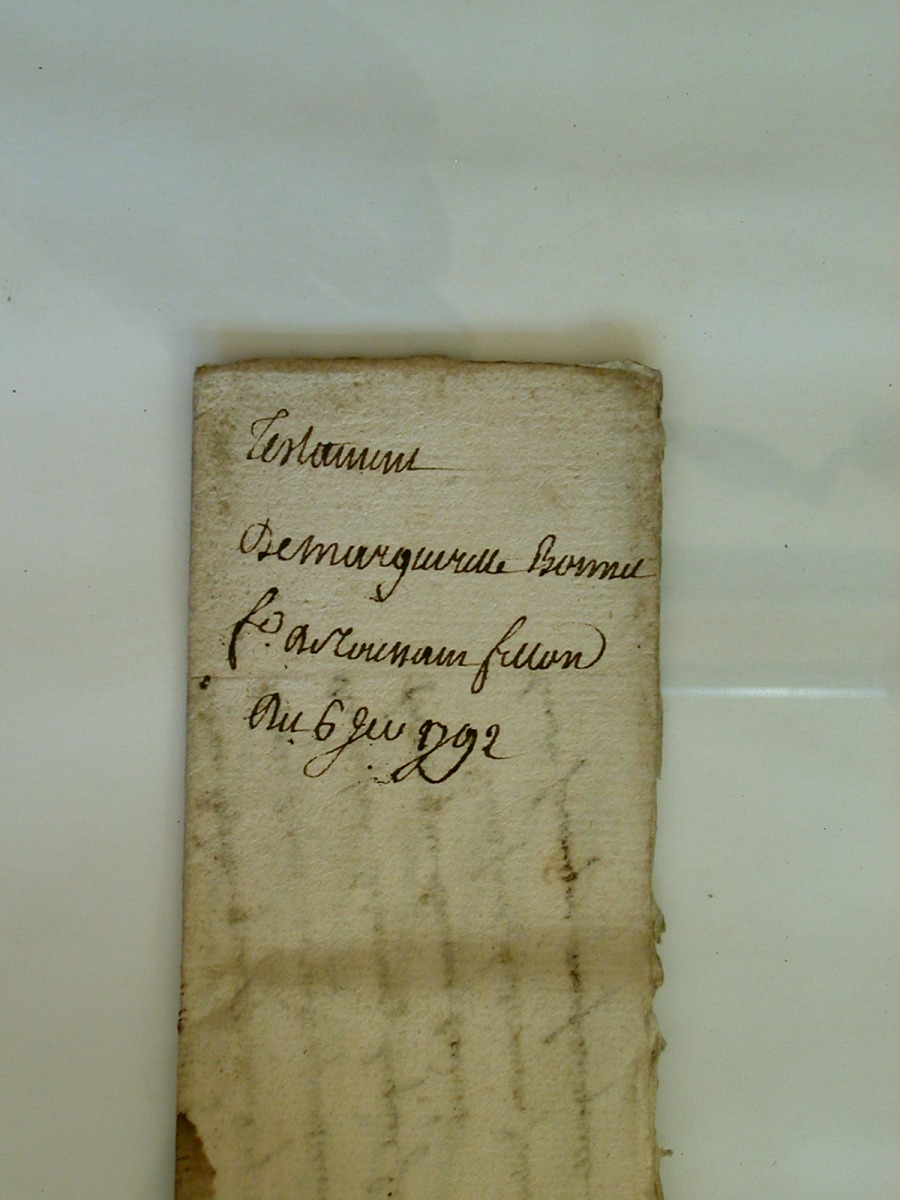 Testament
De margueritte Bonnet
fe. de Toussain fillon
Du 6 Jev 1792